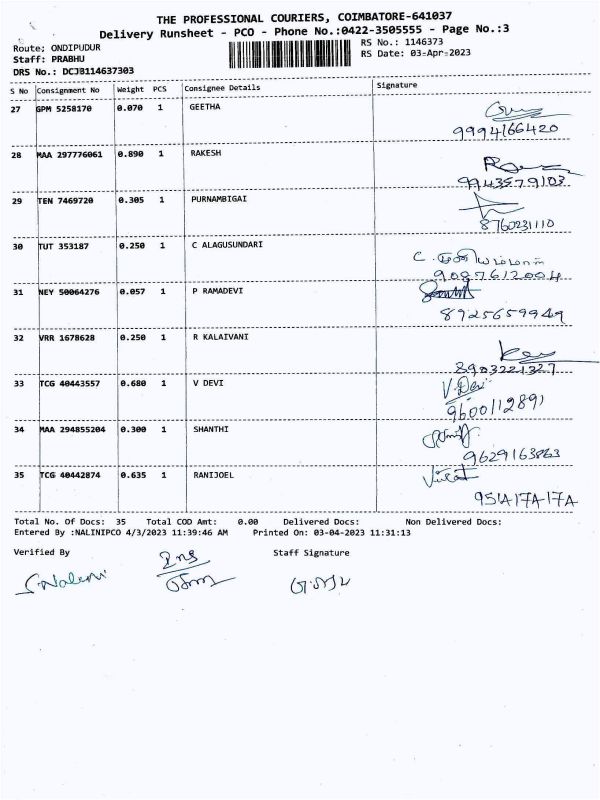 THE PROFESSIONAL COURIERS, COIMBATORE-641037
Delivery Runsheet - PCO - Phone No.:0422-3505555 - Page No.:3
Route; ONDIPUDUR
RS No.: 1146373
Staff: PRABHU
RS Date: 03-Apr-2023
DRS No.: DCJB114637303
S No Consignment No Weight PCS Consignee Details Signature
27 GPM 5258170 0.070 1 GEETHA
9994166420
28 MAA 297776061 0.890 1 RAKESH
9943579103
29 TEN 7469720 0.305 1 PURNAMBIGAI
8760231110
30 TUT 353187 0.250 1 C ALAGUSUNDARI
9087612004
31 NEY 50064276 0.057 1 P RAMADEVI
8925659949
32 VRR 1678628 0.250 1 R KALAIVANI
8903221327
33 TCG 40443557 0.680 1 V DEVI V.Devi
9600112891
34 MAA 294855204 0.300 1 SHANTHI
9629163863
35 TCG 40442874 0.635 1 RANIJOEL
Total No. Of Docs: 35 Total COD Amt: 0.00 Delivered Docs: Non Delivered Docs:
Entered By :NALINIPCO 4/3/2023 11:39:46 AM Printed On: 03-04-2023 11:31:13
Verified By Staff Signature
S.Nalini